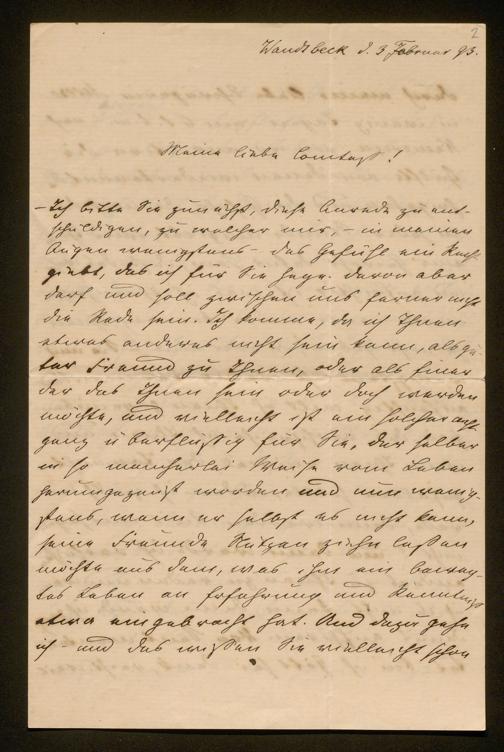 2
Wandsbeck d. 3 Februar 93.
Meine liebe Comtesse!
– Ich bitte Sie zunächst, diese Anrede zu ent-
schuldigen, zu welcher mir, – in meinen
Augen wenigstens – das Gefühl ein Recht
giebt, das ich für Sie hege. Davon aber
darf und soll zwischen uns ferner nicht
die Rede sein. Ich komme, da ich Ihnen
etwas anderes nicht sein kann, als gu-
ter Freund zu Ihnen, oder als Einer
der das Ihnen sein oder doch werden
möchte, und vielleicht ist ein solcher nicht
ganz überflüssig für Sie, der selber
in so mancherlei Weise vom Leben
herumgezaust worden und nun wenig-
stens, wenn er selbst es nicht kann,
seine Freunde Nutzen ziehn lassen
möchte aus dem, was ihm ein beweg-
tes Leben an Erfahrung und Kenntniß
etwa eingebracht hat. Und dazu gehe
ich – und das wissen Sie vielleicht schon